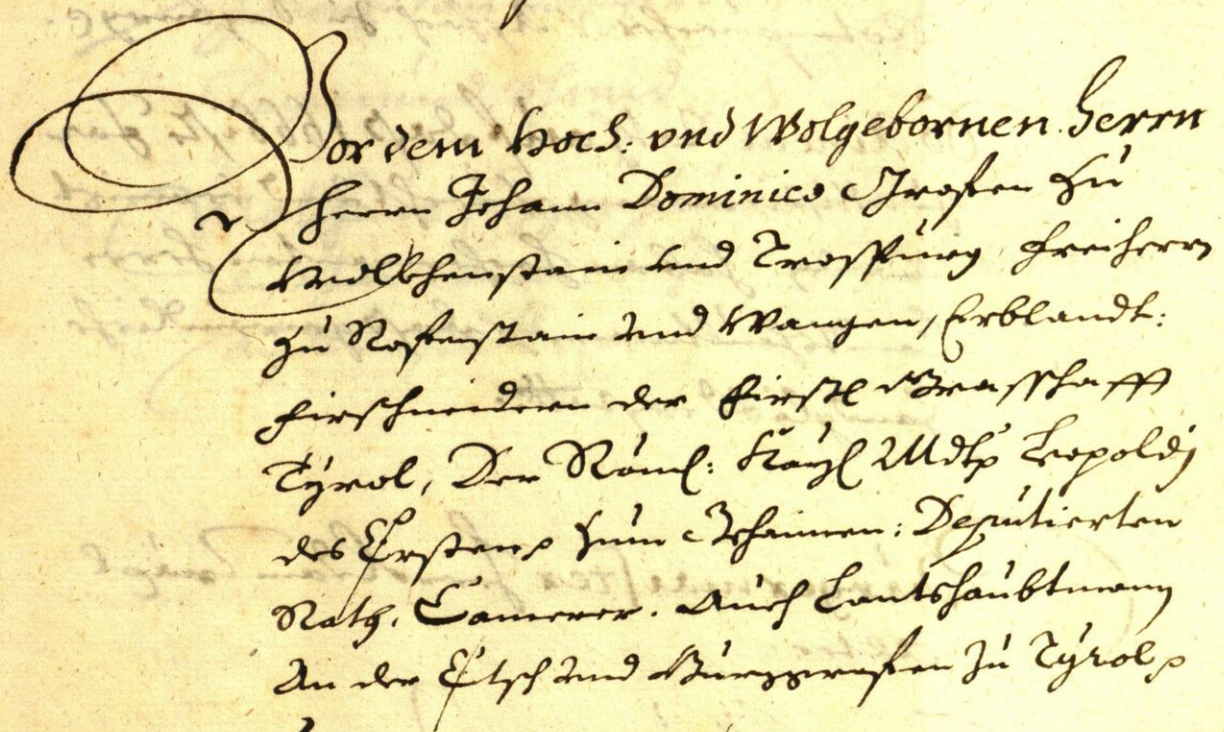 Vor dem Hoch: vnd Wolgebornen Herrn
Herrn Johann Dominico Grafen zu
Wolkhenstain vnd Trospurg, Freiherrn
zu Nofenstain vnd Wangen, Erblandt:
Firschneidern der Firstl Graffschafft
Tÿrol, Der Röm: Kaÿl Mdt Leopoldj
des Ersten zum Gehaimen: Deputierten
Rath, Camerer. Auch Lantshaubtmann
An der Etsch vnd Burggrafen zu Tÿrol